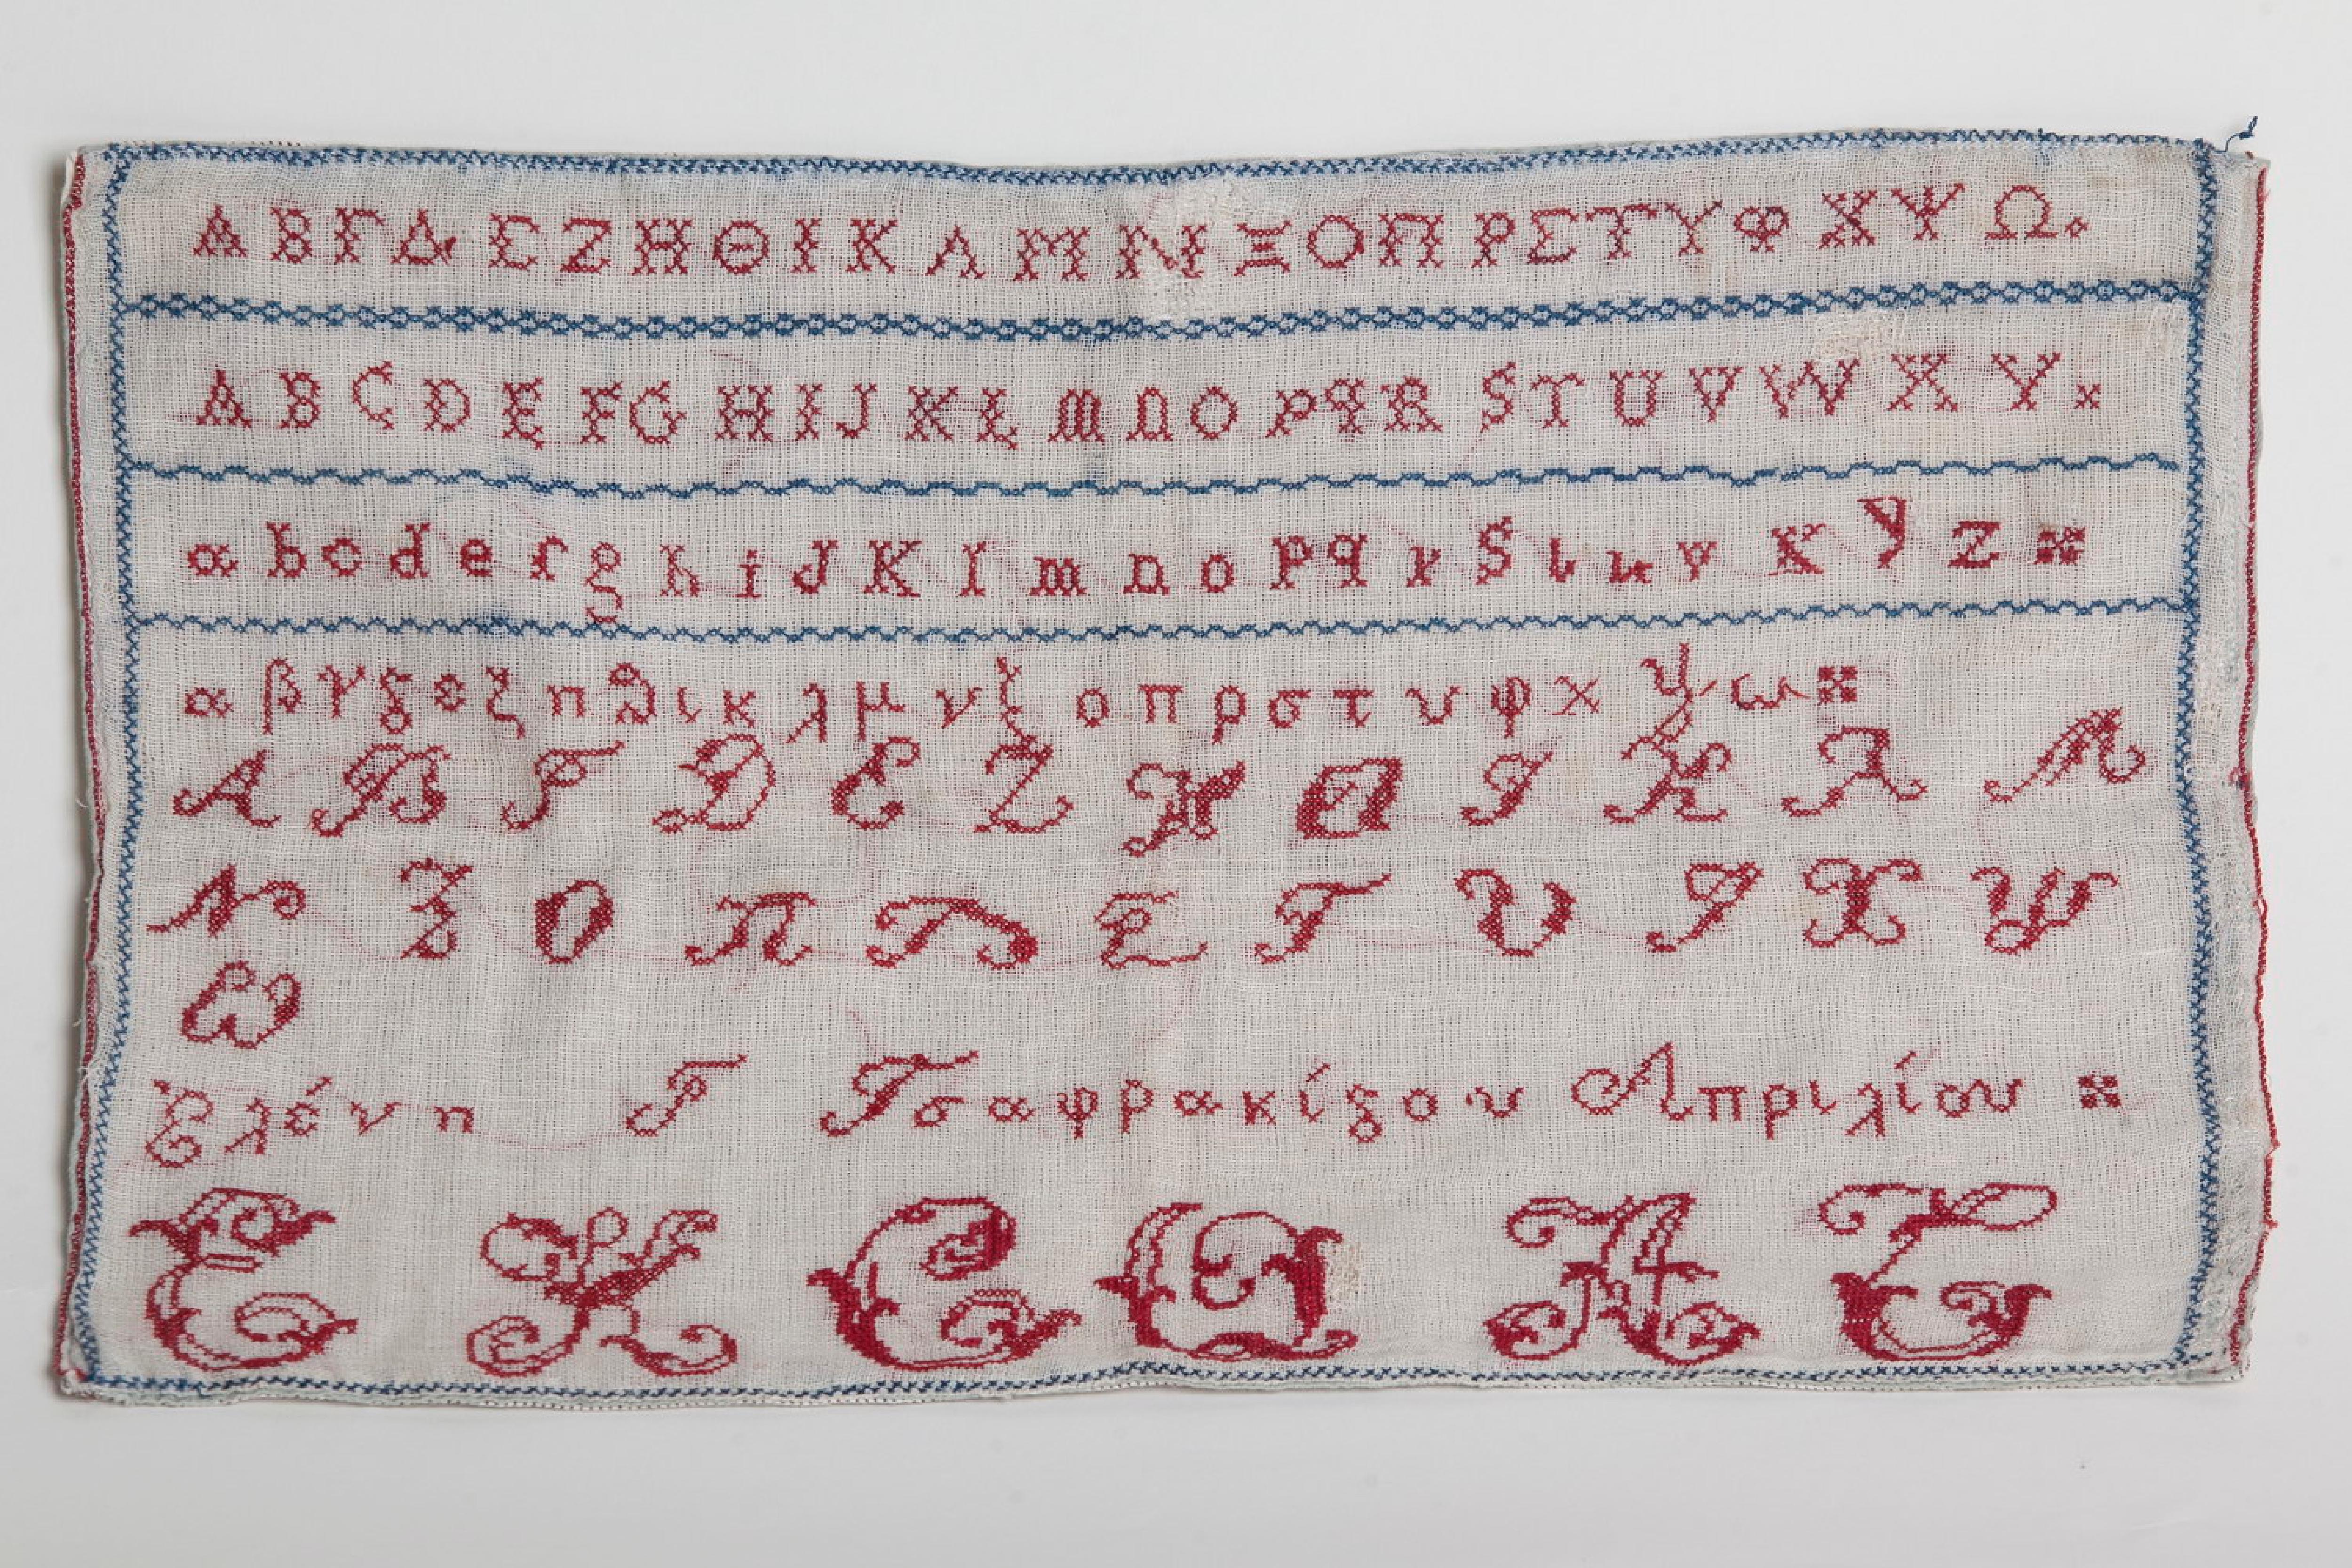 Α Β Γ Δ Ε Ζ Η Θ Ι Κ Λ Μ Ν Ξ Ο Π Ρ Σ Τ Υ Φ Χ Ψ Ω
A B C D E F G H I J K L M N O P q R S T U V W X Y
a b c d e f g h i J K l m n o P q r S t u v X y z
α β γ δ ε ζ η θ ι κ λ μ ν ξ ο π ρ σ τ υ φ χ ψ ω
Α Β Γ Δ Ε Ζ Η Θ Ι Κ Λ Μ
Ν Ξ Ο Π Ρ Σ Τ Υ Φ Χ Ψ
Ω
Ἑλένη Γ Τσαφρακίδου Απριλίου